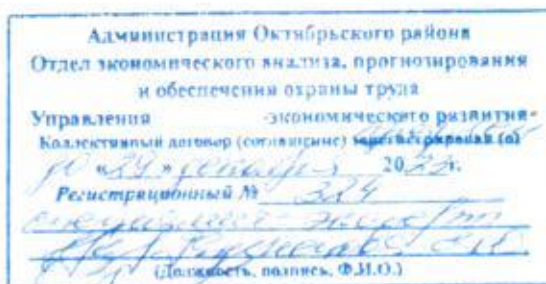 Администрация Октябрьского района
Отдел экономического анализа, прогнозирования
и обеспечения охраны труда
Управления -экономического развития-
Коллективный договор (соглашение)
до «24» декабря 20 г.
Регистрационный № 324
специалист - эксперт
(Должность, подпись, Ф.И.О.)